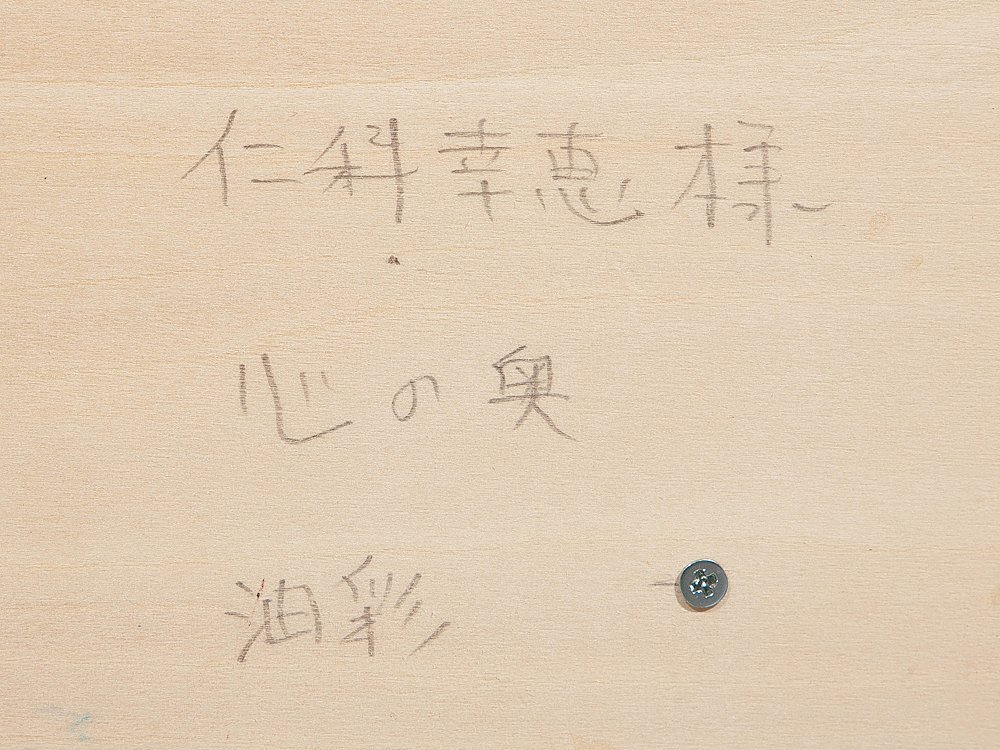 仁科幸恵様
心の奥
油彩